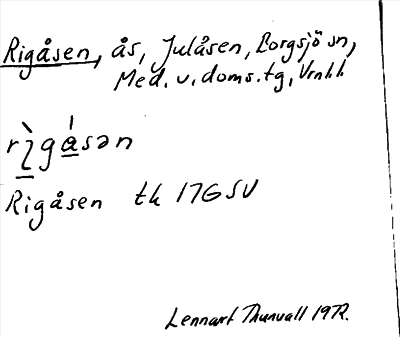 Rigåsen, ås, Julåsen, Borgsjö sn,
Med. v. doms.tg, Vrnhh
Rigåsen tk 17G SV
Lennart Thunvall 1972.